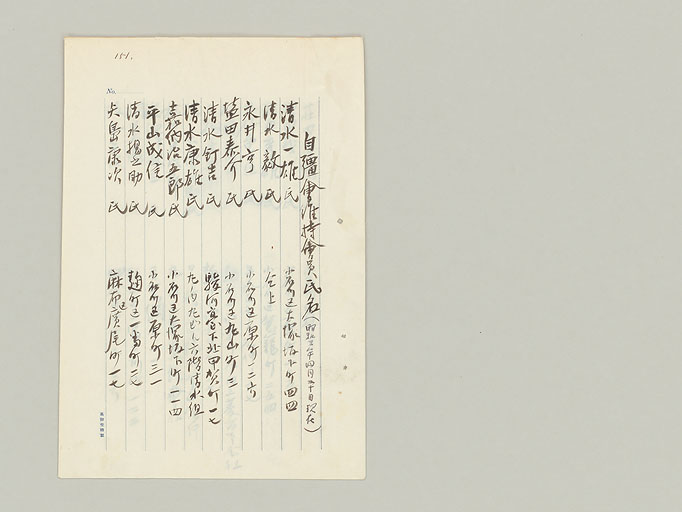 151.
No.
自彊會維持會員氏名(昭和三年四月三十日現在)
清水一雄氏 小石川区大塚坂下町四四
清水毅氏 仝上
永井亨氏 小石川区原町一二六
益田泰介氏 小石川区丸山町三
清水釘吉氏 駿河台下北甲賀町一七
清水康雄氏 丸ノ内丸ビル六階清水組
嘉納治五郎氏 小石川区大塚坂下町一一四
平山成信氏 小石川区原町三一
清水揚之助氏 麹町区一番町二七
矢島康次氏 麻布区廣尾町一七